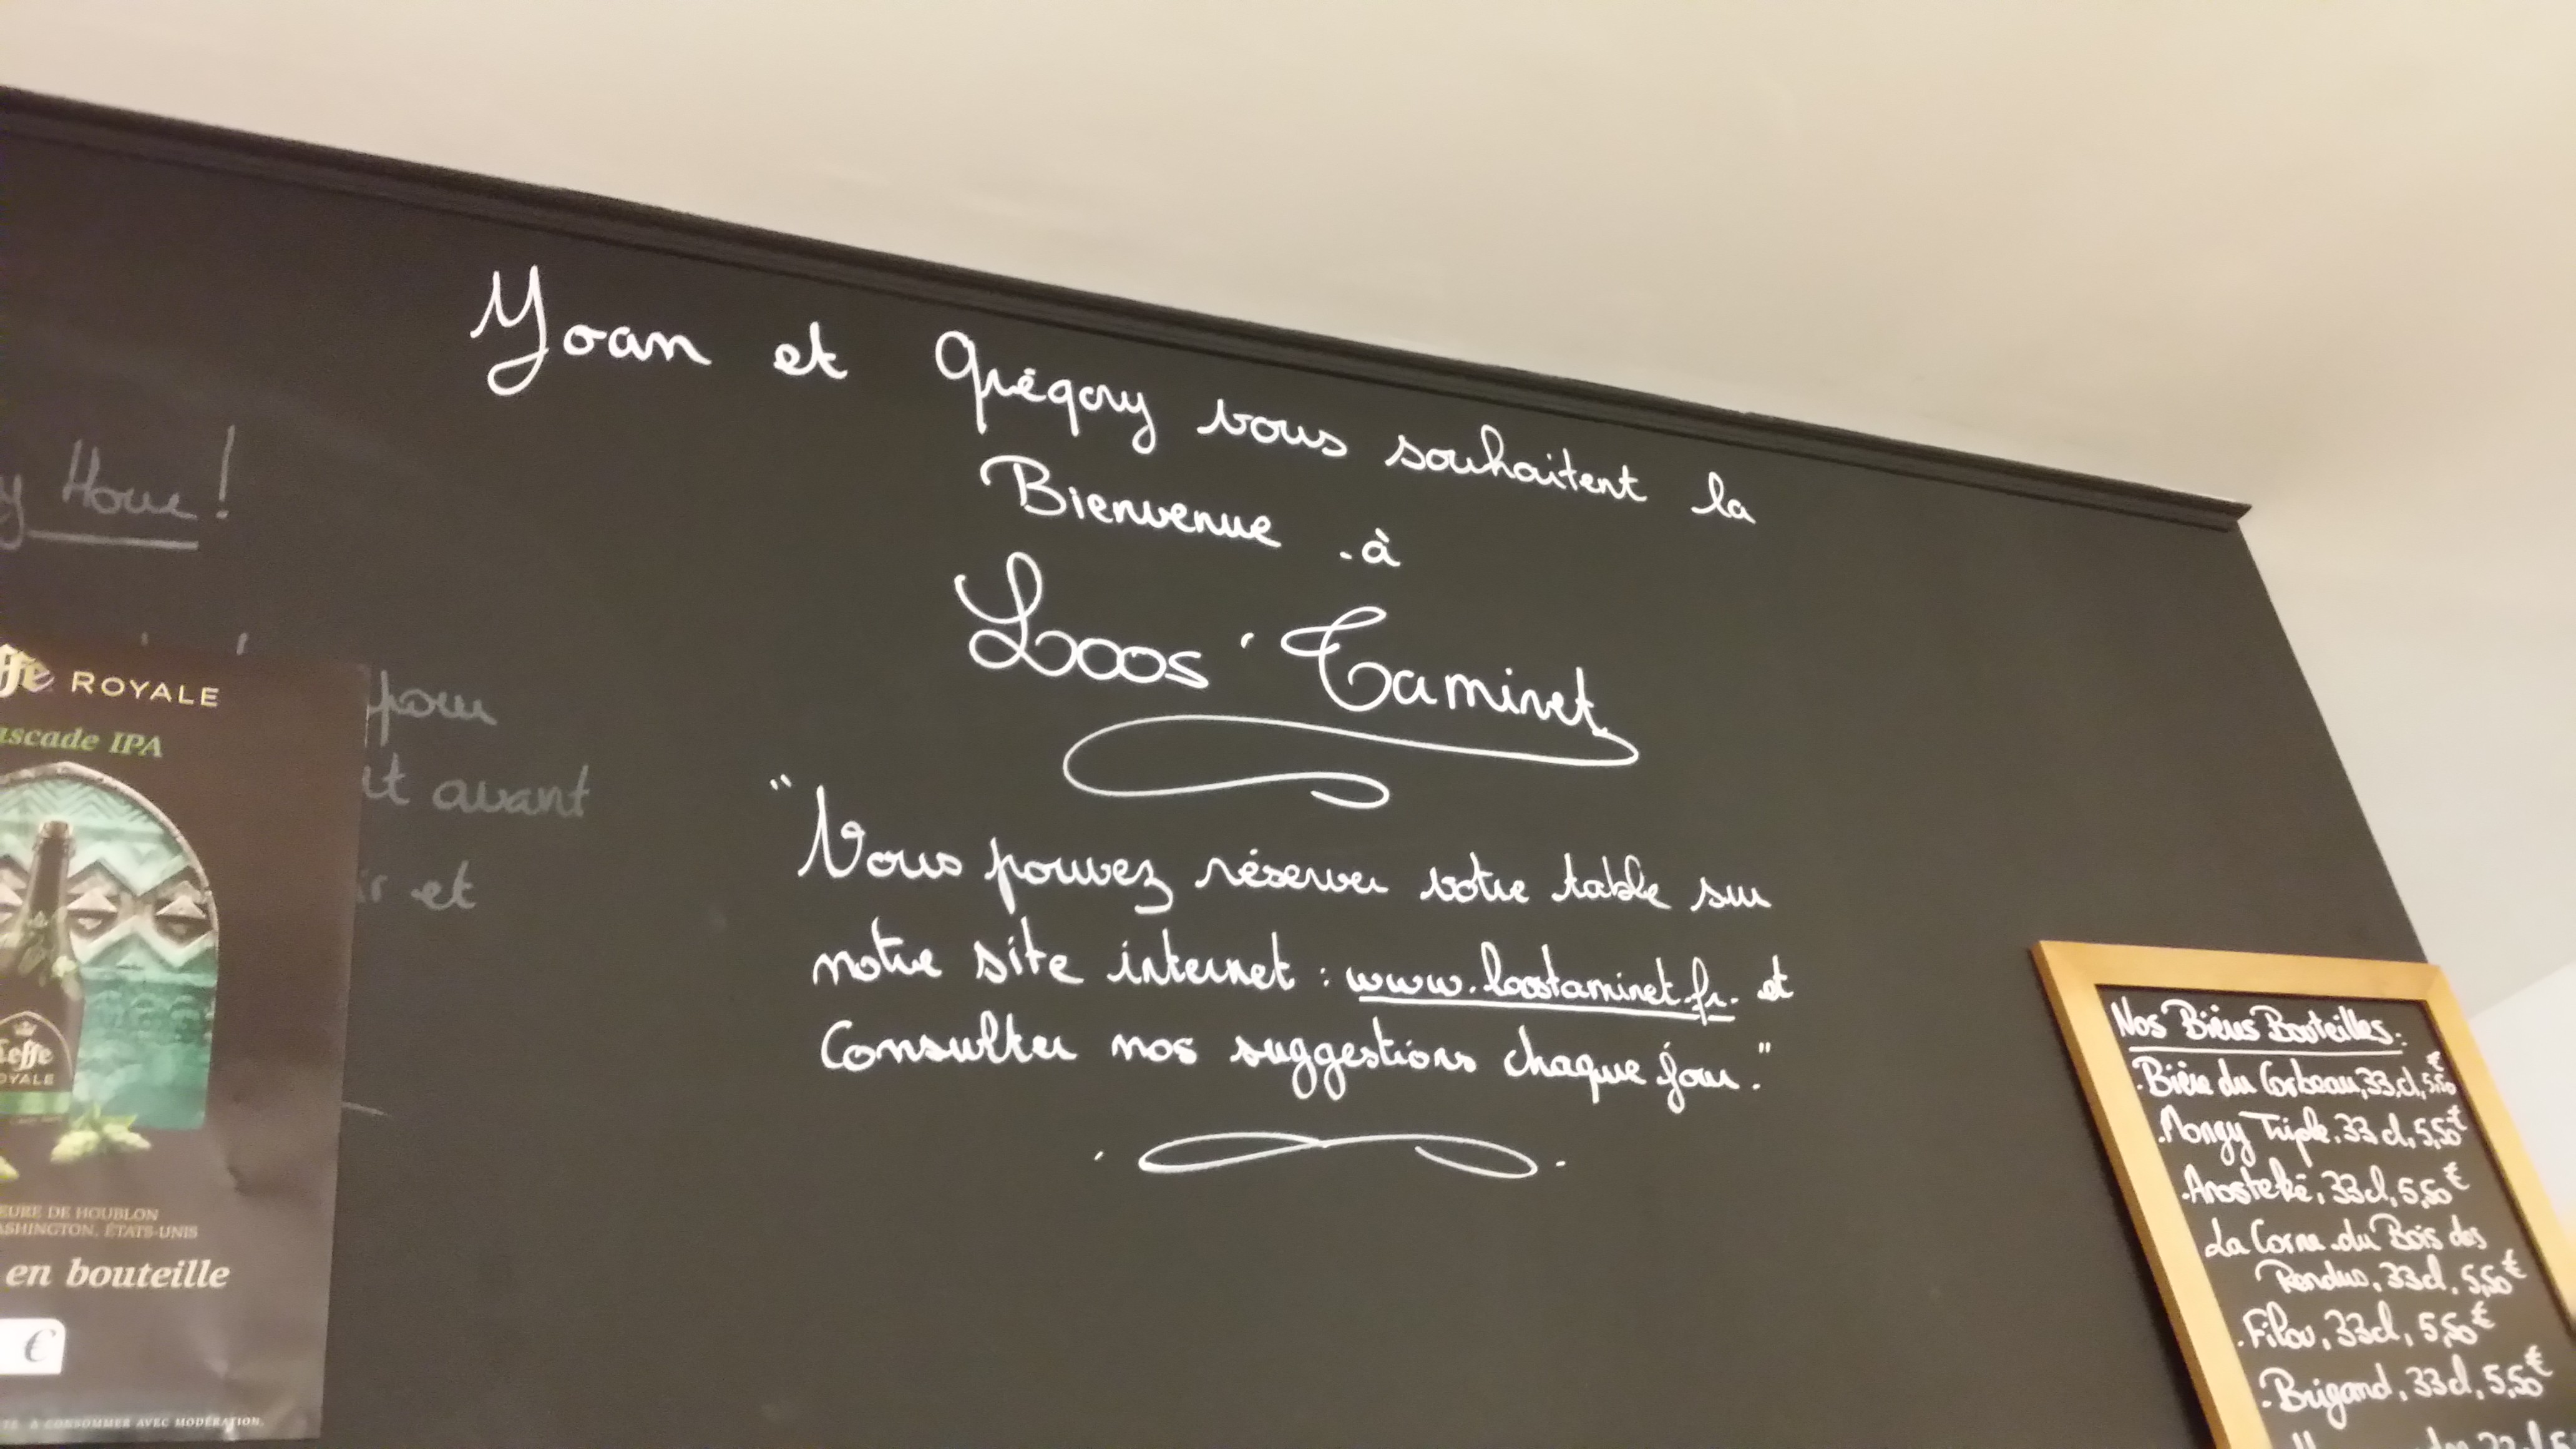 Yoan et Grégory vous souhaitent la
Bienvenue à
Loos'Taminet
"Vous pouvez réserver votre table sur
notre site internet : www.loostaminet.fr. et
Consulter nos suggestions chaque jour."
y Hour!
pour
it avant
ir et
ffe ROYALE
ascade IPA
Leffe
OYALE
EURE DE HOUBLON
ASHINGTON, ÉTATS-UNIS
en bouteille
€
A CONSOMMER AVEC MODÉRATION.
Nos Bières Bouteilles:
.Bière du Corbeau, 33cl, 5,50€
.Mongy Triple, 33cl, 5,50€
.Anosteké, 33cl, 5,50€
La Corne du Bois des
Pendus, 33cl, 5,50€
.Filou, 33cl, 5,50€
.Brigand, 33cl, 5,50€